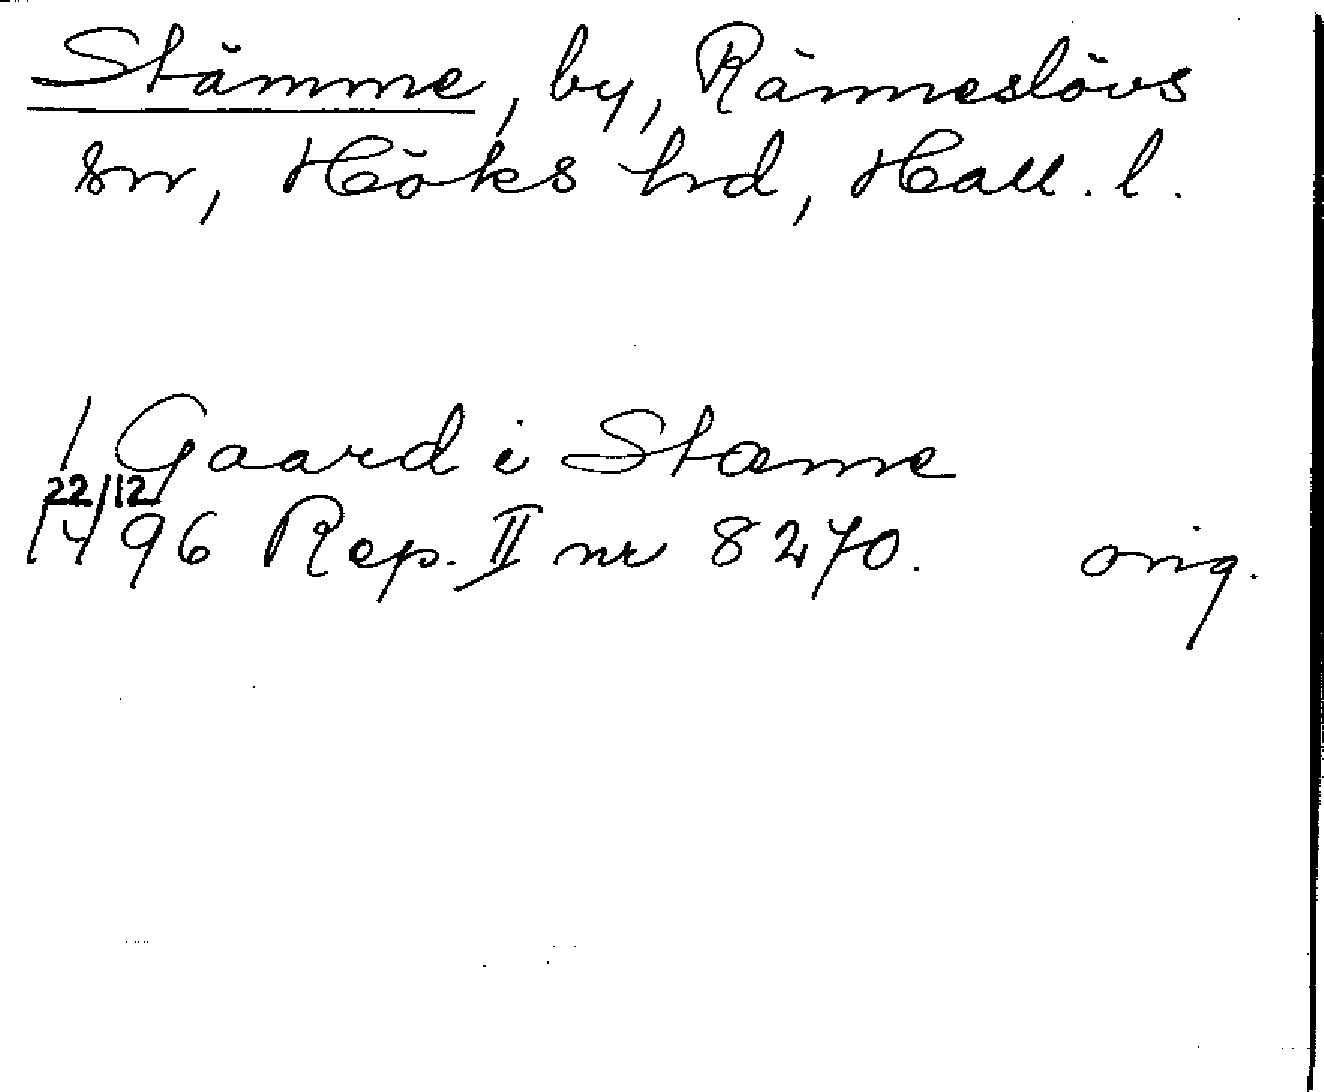 Stämme, by, Ränneslövs
sn, Höks hd, Hall. l.
1 Gaard i Stæme
22/12
1496 Rep. II nr 8270. orig.